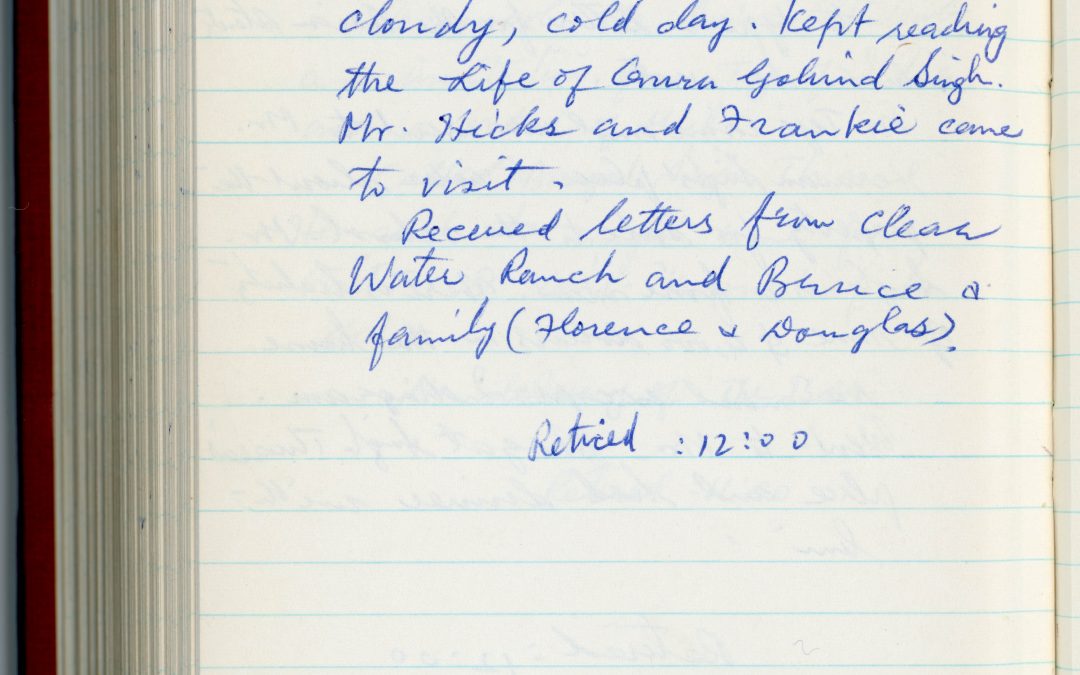 cloudy, cold day. Kept reading
the Life of Guru Gobind Singh.
Mr. Hicks and Frankie came
to visit.
Received letters from Clear
Water Ranch and Bernice &
family (Florence & Douglas).
Retired : 12:00